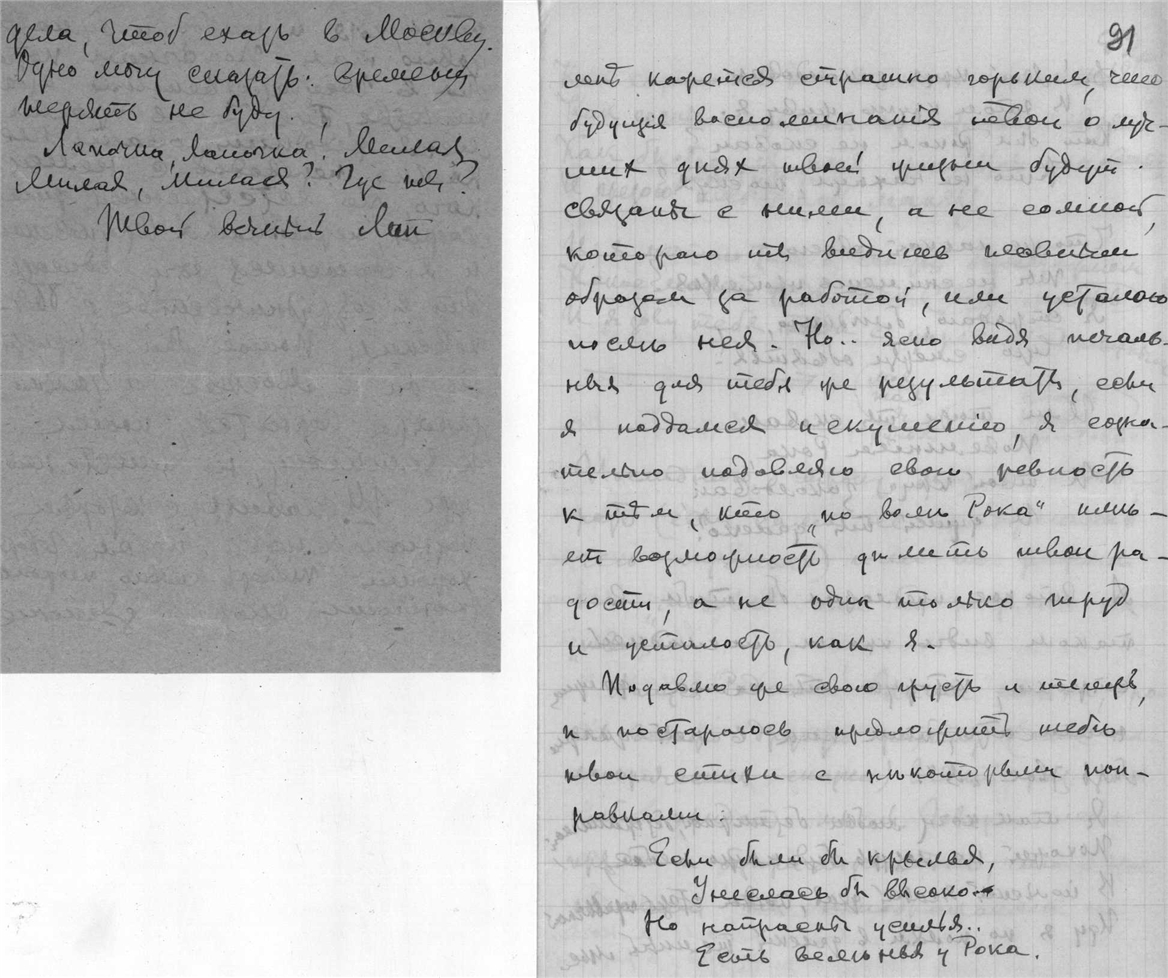 дела, чтоб ехать в Москву.
Одно могу сказать: времени
терять не буду.
Лапочка, Лапочка! Милая,
Милая, Милая? Где ты?
Твой вечный
91
мнѣ кажется страшно горьким, что
будущія воспоминанія твои о луч-
ших днях твоей жизни будут
связаны с ними, а не со мной,
котораго ты видишь главным
образом за работой, или усталаго
послѣ нея. Но.. ясно видя печаль-
ные для тебя же результаты, если
я поддамся искушенію, я созна-
тельно подавляю свою ревность
к тѣм, кто „по волѣ Рока" имѣ-
ет возможность дѣлить твои ра-
дости, а не один только труд
и усталость, как я.
Подавлю же свою грусть и теперь,
и постараюсь предложить тебѣ
твои стихи с нѣкоторыми поп-
равками.
Если были бы крылья,
Унеслась бы высоко
Но напрасны усилья..
Есть веленья у Рока.